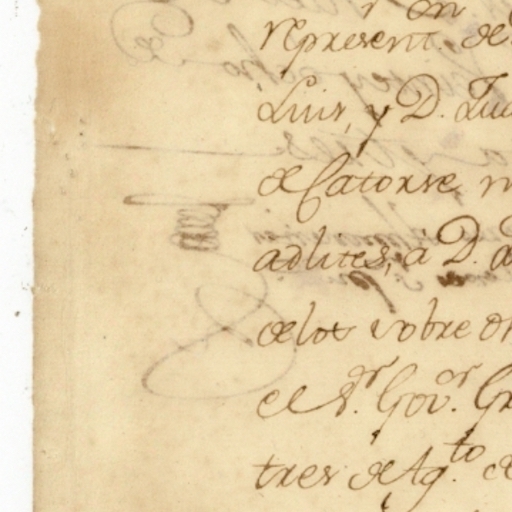 represent.on de
Luis, y D. Jua
de Catorse m
adlites, á D. d
delos sobre
el S.r Gov.or Gr
tres de Ag.to d